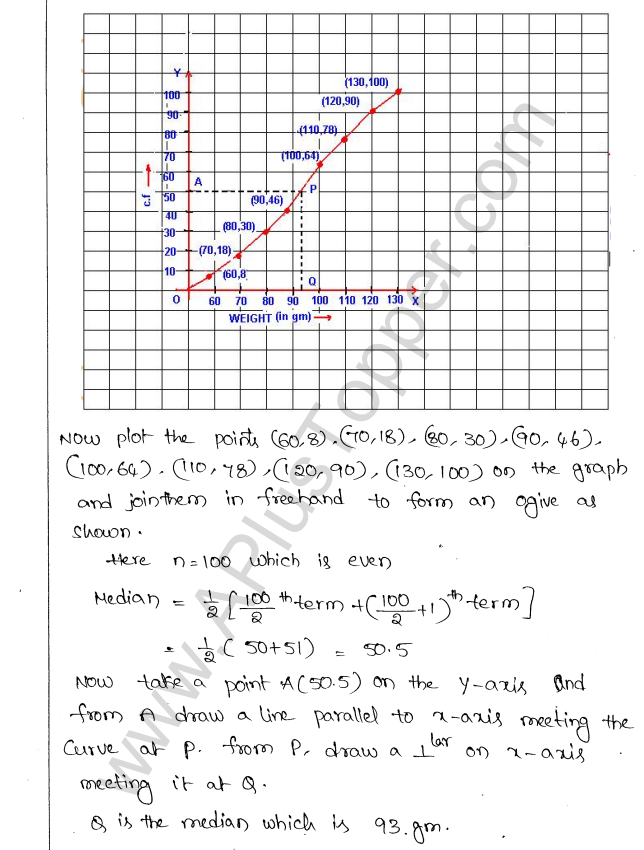 Y
(130,100)
100
(120,90)
90
(110,78)
80
70
(100,64)
60
A
P
c.f
50
(90,46)
40
(80,30)
30
(70,18)
20
(60,8
10
Q
O 60 70 80 90 100 110 120 130 X
WEIGHT (in gm)
Now plot the points (60,8), (70,18), (80,30), (90,46),
(100,64), (110,78), (120,90), (130,100) on the graph
and join them in freehand to form an ogive as
shown.
Here n=100 which is even
Median = 1/2 [100/2 th term + (100/2 +1)th term]
= 1/2 (50+51) = 50.5
Now take a point A(50.5) on the y-axis and
from A draw a line parallel to x-axis meeting the
curve at P. from P, draw a ⊥lar on x-axis
meeting it at Q.
Q is the median which is 93.gm.
www.APlusTopper.com